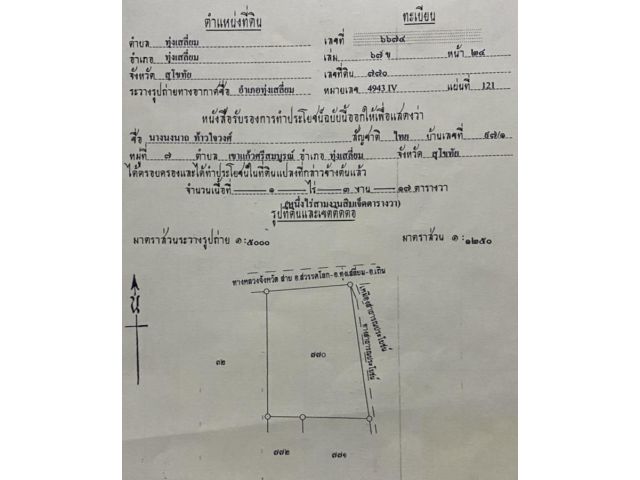 ตำแหน่งที่ดิน ทะเบียน
ตำบล ทุ่งเสลี่ยม เลขที่ ๖๖๗๔
อำเภอ ทุ่งเสลี่ยม เล่ม ๖๗ ข หน้า ๒๔
จังหวัด สุโขทัย เลขที่ดิน ๗๗๐
ระวางรูปถ่ายทางอากาศชื่อ อำเภอทุ่งเสลี่ยม หมายเลข 4943 IV แผ่นที่ 121
หนังสือรับรองการทำประโยชน์ฉบับนี้ออกให้เพื่อแสดงว่า
ชื่อ นางนงนาถ ท้าวใจวงศ์ สัญชาติ ไทย บ้านเลขที่ ๔๗/๑
หมู่ที่ ๗ ตำบล เขาแก้วศรีสมบูรณ์ อำเภอ ทุ่งเสลี่ยม จังหวัด สุโขทัย
ได้ครอบครองและได้ทำประโยชน์ในที่ดินแปลงที่กล่าวข้างต้นแล้ว
จำนวนเนื้อที่ ๑ ไร่ ๓ งาน ๑๗ ตารางวา
(หนึ่งไร่สามงานสิบเจ็ดตารางวา)
รูปที่ดินและเขตติดต่อ
มาตราส่วนระวางรูปถ่าย ๑:๕๐๐๐ มาตราส่วน ๑:๑๒๕๐
ทางหลวงจังหวัด สาย อ.สวรรคโลก-อ.ทุ่งเสลี่ยม-อ.เถิน
น
เหมืองสาธารณประโยชน์
ทางสาธารณประโยชน์
๓๒ ๗๗๐
๗๗๒ ๗๗๑